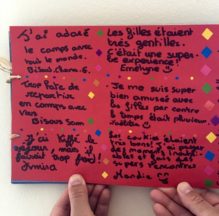 J'ai adoré
le camps avec
tout le monde.
Bisod.Cham.E.
Trop hâte de
repartir
en camps avec
vous
Bisous Sam
J'ai kiffé le
séjour, mais il
faisait trop froid!
Amira
Les filles étaient
très gentilles.
C'était une super
expérience!
Emelyne
Je me suis super
bien amusée avec
les filles par contre
le temps était pluvieux.
Les soirées étaient
très bons! J'ai passé
des moments inoubli-
ables et fais des
supers rencontres